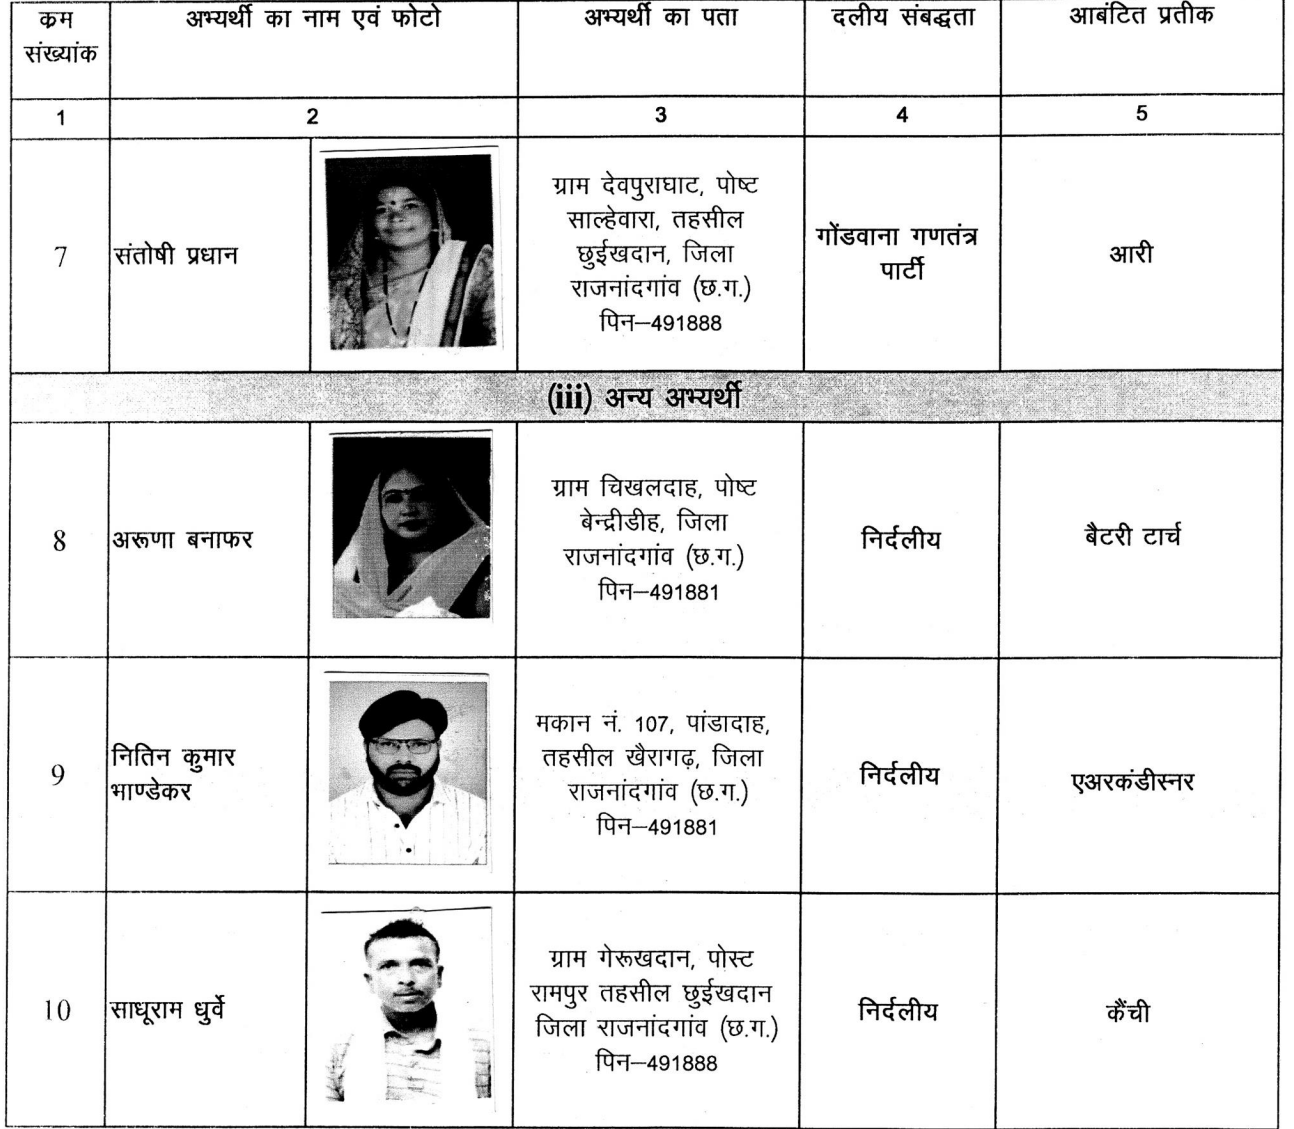 क्रम
संख्यांक
अभ्यर्थी का नाम एवं फोटो
अभ्यर्थी का पता
दलीय संबद्धता
आबंटित प्रतीक
1
2
3
4
5
7
संतोषी प्रधान
ग्राम देवपुराघाट, पोष्ट
साल्हेवारा, तहसील
छुईखदान, जिला
राजनांदगांव (छ.ग.)
पिन–491888
गोंडवाना गणतंत्र
पार्टी
आरी
(iii) अन्य अभ्यर्थी
8
अरूणा बनाफर
ग्राम चिखलदाह, पोष्ट
बेन्द्रीडीह, जिला
राजनांदगांव (छ.ग.)
पिन–491881
निर्दलीय
बैटरी टार्च
9
नितिन कुमार
भाण्डेकर
मकान नं. 107, पांडादाह,
तहसील खैरागढ़, जिला
राजनांदगांव (छ.ग.)
पिन–491881
निर्दलीय
एअरकंडीस्नर
10
साधूराम धुर्वे
ग्राम गेरूखदान, पोस्ट
रामपुर तहसील छुईखदान
जिला राजनांदगांव (छ.ग.)
पिन–491888
निर्दलीय
कैंची